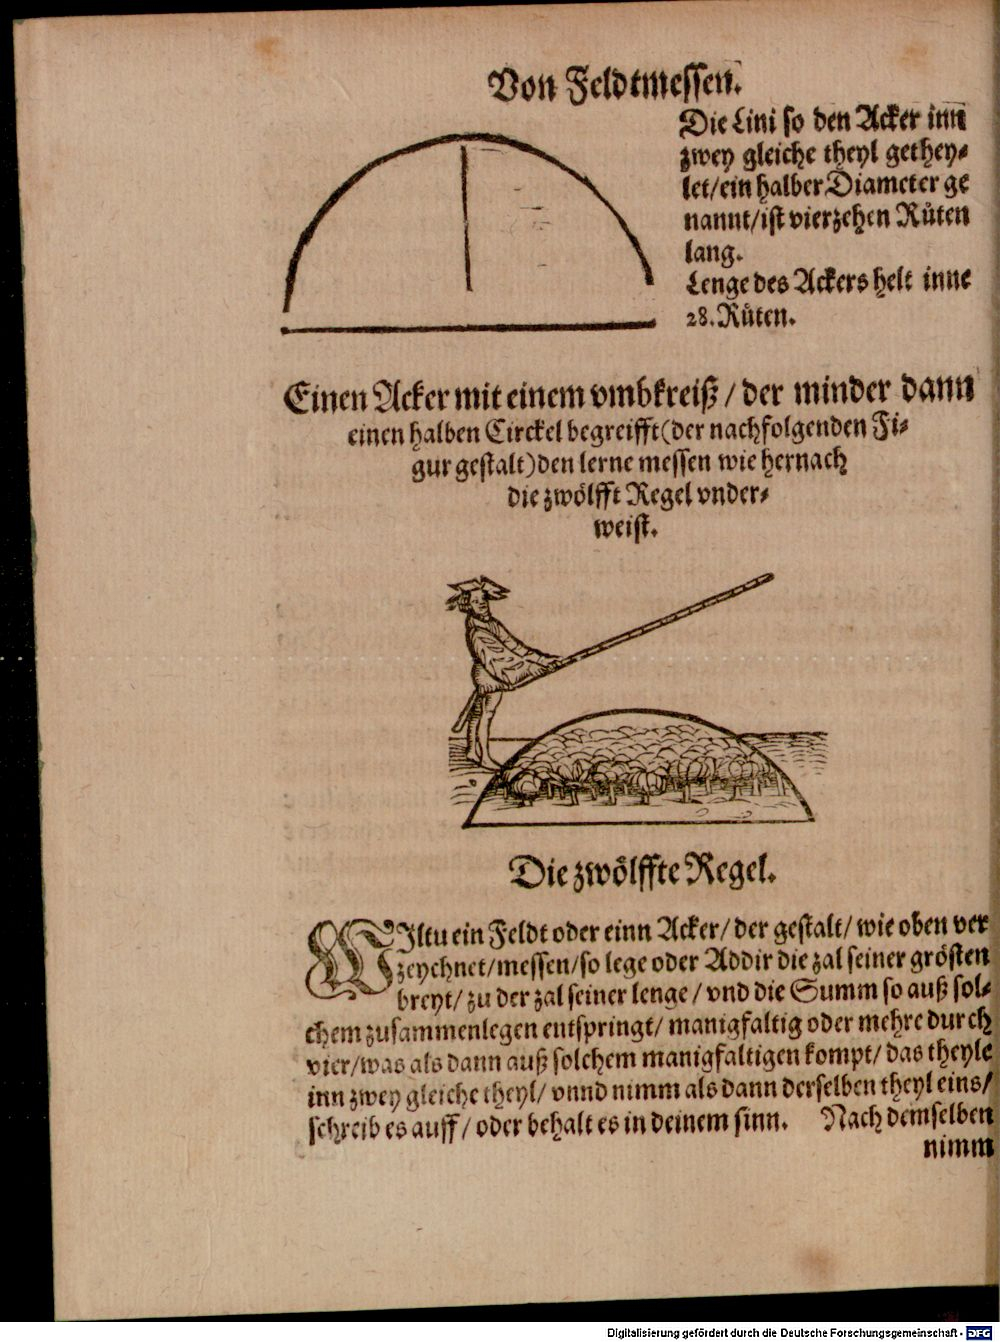 Von Feldtmessen.
Die Lini so den Acker inn
zwey gleiche theyl gethey⸗
let/ein halber Diameter ge
nannt/ist vierzehen Růten
lang.
Lenge des Ackers helt inne
28. Růten.
Einen Acker mit einem vmbkreiß / der minder dann
einen halben Circkel begreifft(der nachfolgenden Fi⸗
gur gestalt)den lerne messen wie hernach
die zwölfft Regel vnder⸗
weist.
Die zwölffte Regel.
WIltu ein Feldt oder einn Acker/ der gestalt/ wie oben ver
zeychnet/messen/so lege oder Addir die zal seiner grösten
breyt/ zu der zal seiner lenge / vnd die Summ so auß sol⸗
chem zusammenlegen entspringt/ manigfaltig oder mehre durch
vier/was als dann auß solchem manigfaltigen kompt/ das theyle
inn zwey gleiche theyl/ vnnd nimm als dann derselben theyl eins/
schreib es auff / oder behalt es in deinem sinn. Nach demselben
nimm
Digitalisierung gefördert durch die Deutsche Forschungsgemeinschaft - DFG